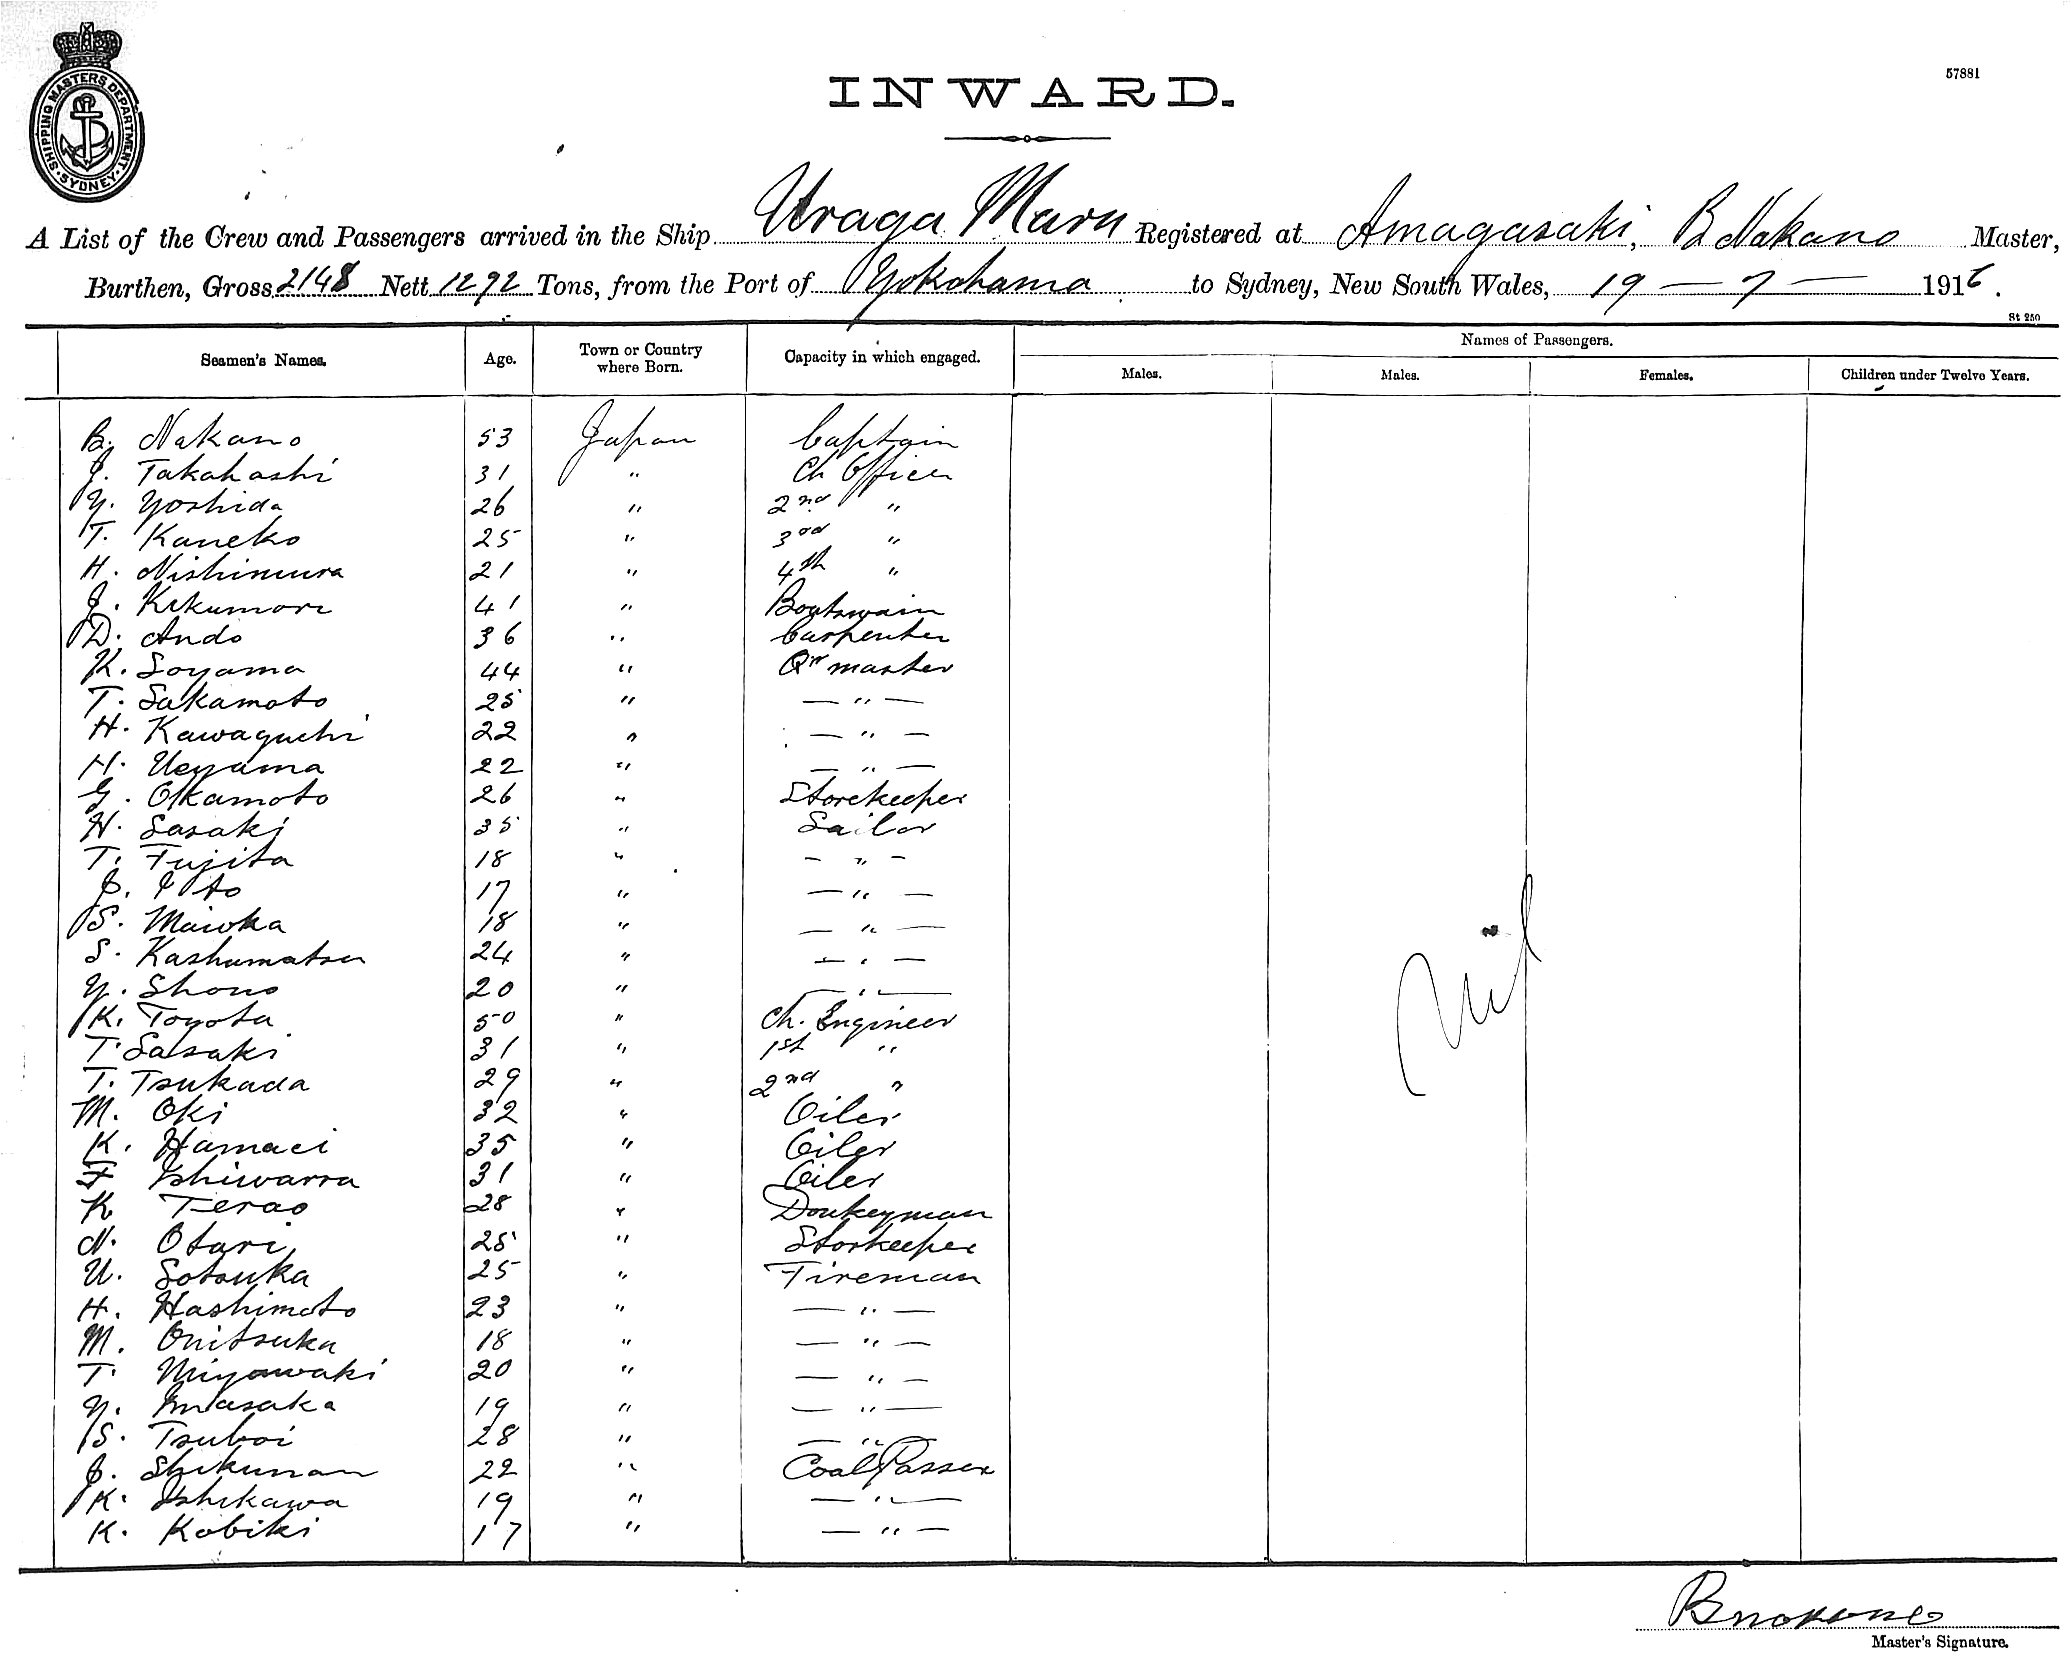 SHIPPING MASTERS DEPARTMENT · SYDNEY ·
57881
INWARD.
A List of the Crew and Passengers arrived in the Ship Uraga Maru Registered at Amagasaki, B Nakano Master,
Burthen, Gross 2148 Nett 1292 Tons, from the Port of Yokohama to Sydney, New South Wales, 19 — 7 — 1916.
St 250
Seamen's Names. Age. Town or Country where Born. Capacity in which engaged. Names of Passengers.
Males. Males. Females. Children under Twelve Years.
B. Nakano 53 Japan Captain
J. Takahashi 31 " Ch Officer
Y. Yoshida 26 " 2nd "
T. Kaneko 25 " 3rd "
H. Nishimura 21 " 4th "
J. Kikumori 41 " Boatswain
D. Ando 36 " Carpenter
K. Soyama 44 " Qr master
T. Sakamoto 25 " — " —
H. Kawaguchi 22 " — " —
H. Ueyama 22 " — " —
G. Okamoto 26 " Storekeeper
H. Sasaki 35 " Sailor
T. Fujita 18 " — " —
J. Ito 17 " — " —
S. Maioka 18 " — " —
S. Kashumatsu 24 " — " —
Y. Shono 20 " — " —
K. Toyota 50 " Ch. Engineer
T. Sasaki 31 " 1st "
T. Tsukada 29 " 2nd "
M. Oki 32 " Oiler
K. Hamaei 35 " Oiler
F Ishiwarra 31 " Oiler
K Terao 28 " Donkeyman
N. Otari 25 " Storkeeper
U. Sotsuka 25 " Fireman
H. Hashimoto 23 " — " —
M. Onitsuka 18 " — " —
T. Miyawaki 20 " — " —
Y. Imasaka 19 " — " —
S. Tsuboi 28 " — " —
J. 22 " Coal Passer
K. Ishikawa 19 " — " —
K. Kobiki 17 " — " —
Nil
B Nakano
Master's Signature.